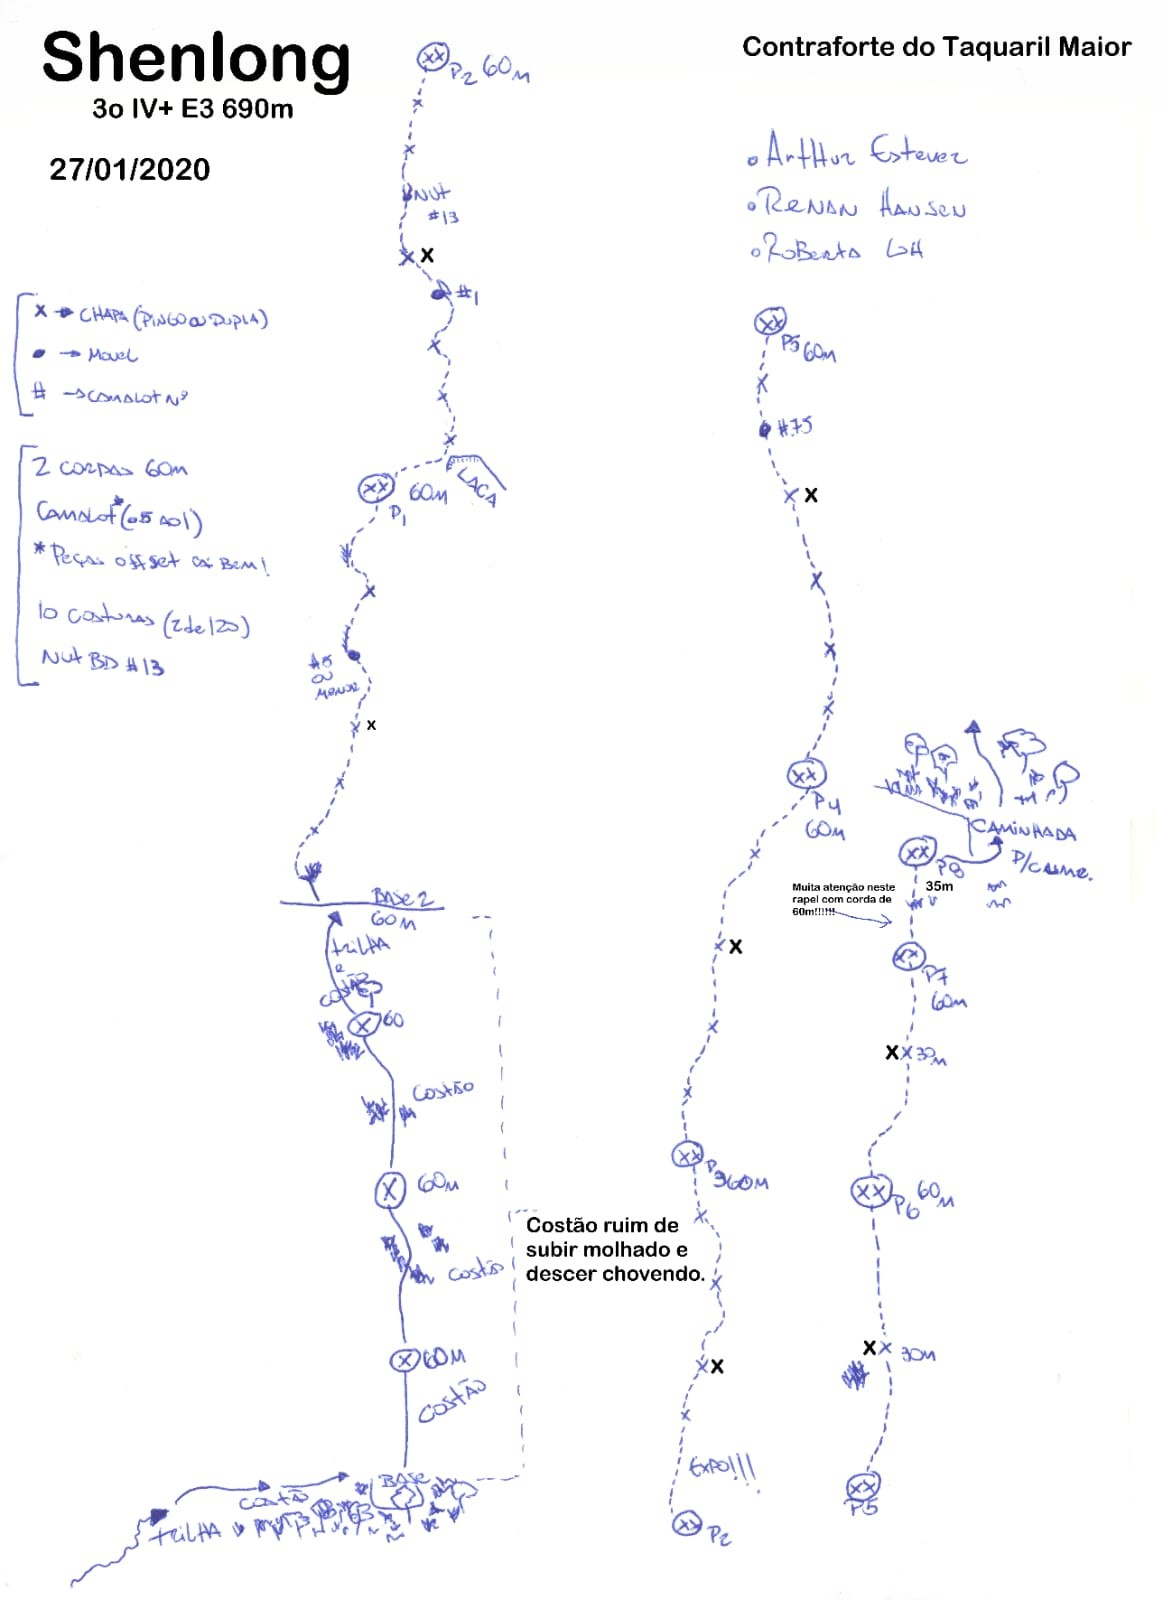 Shenlong
3o IV+ E3 690m
27/01/2020
Contraforte do Taquaril Maior
• Arthur Estevez
• Renan Hansen
• Roberta LH
x → CHAPA (PINGO OU DUPLA)
• → Movel
# → CAMALOT Nº
2 CORDAS 60M
Camalot* (.5 ao 1)
* Peças offset cai Bem!
10 costuras (2 de 120)
NUT BD #13
P2 60M
NUT
#13
X
#1
LACA
60M
P1
#.5
OU
MENOR
X
BASE 2
60M
TRILHA
e
COSTÃO
60
COSTÃO
60M
COSTÃO
60M
COSTÃO
BASE
COSTÃO
TRILHA
Costão ruim de
subir molhado e
descer chovendo.
P5 60M
#.75
X
P4
60M
X
P3 60M
X
EXPO!!!
P2
CAMINHADA
P/CUME.
P8
35m
Muita atenção neste
rapel com corda de
60m!!!!!!
P7
60M
X 30M
P6 60M
X 30M
P5